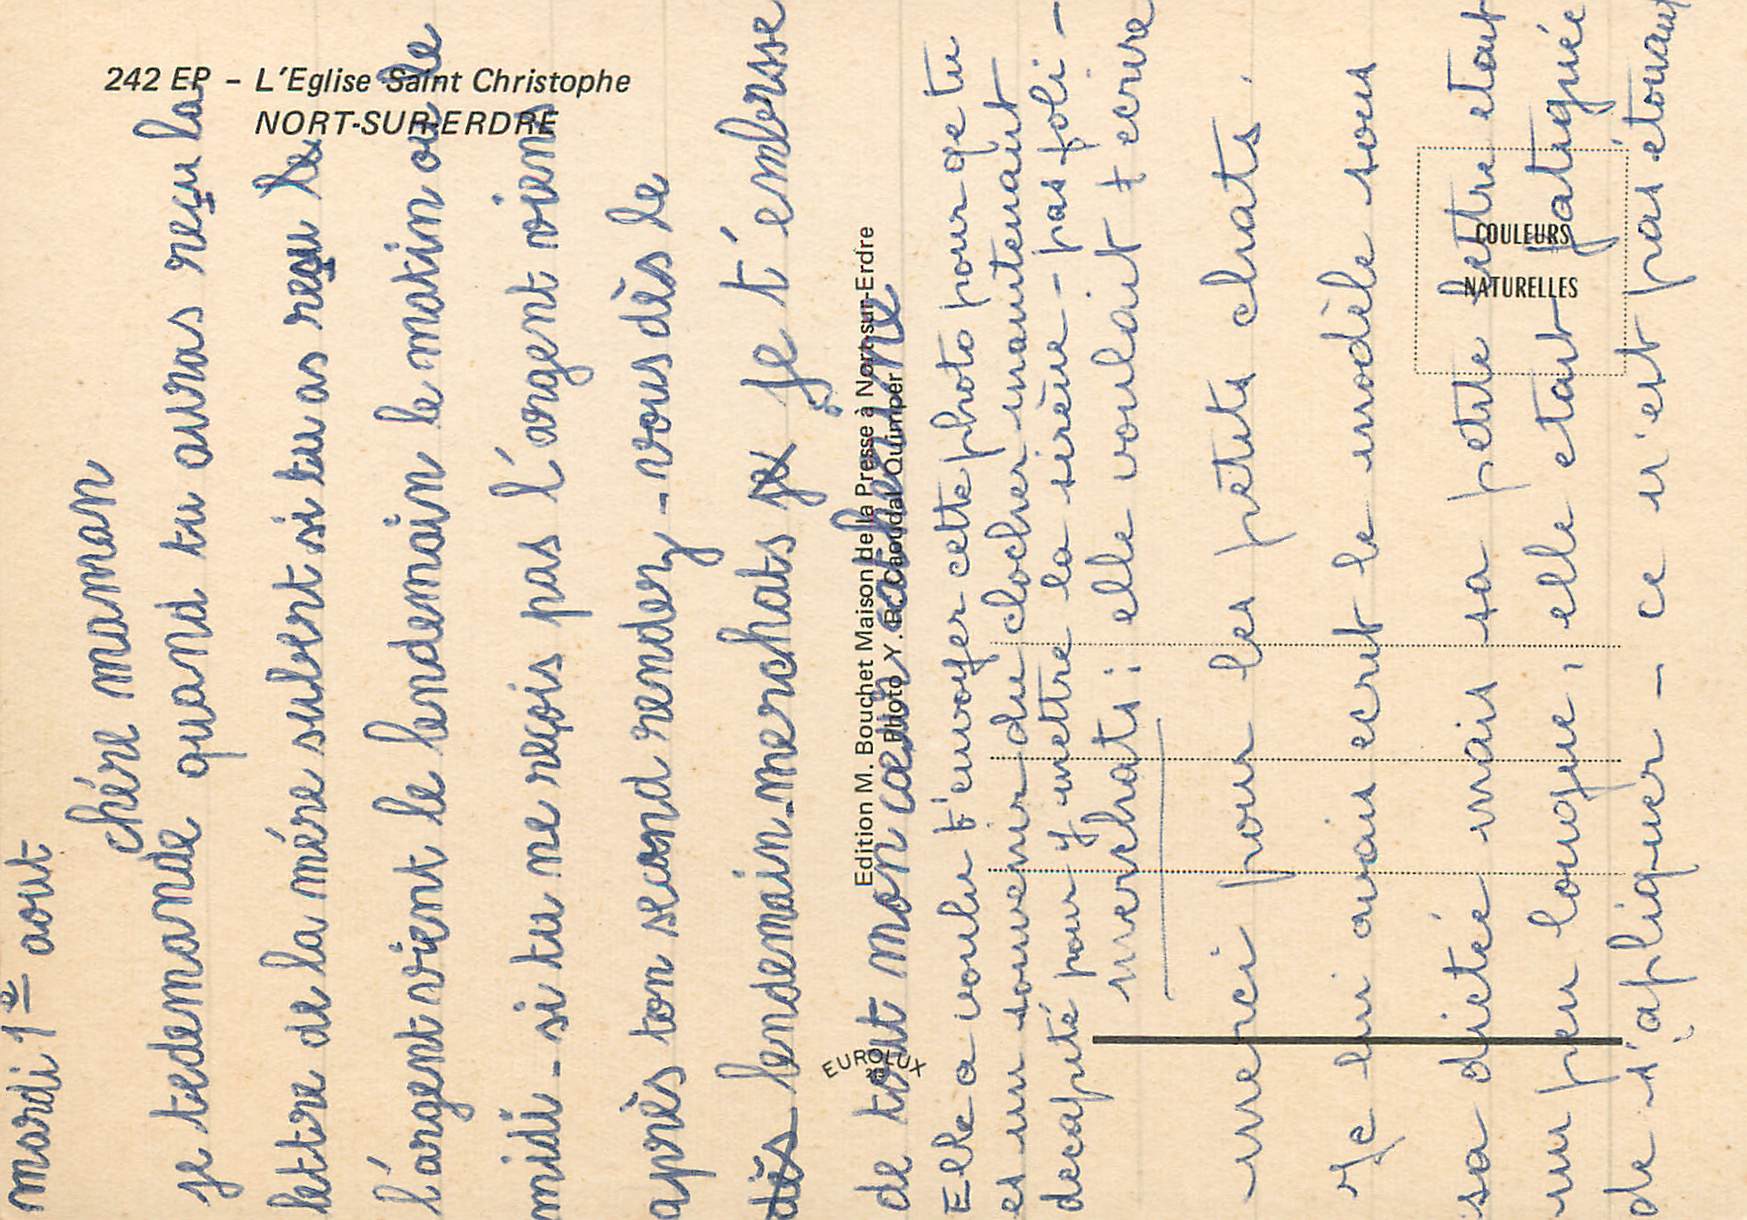 242 EP - L'Eglise Saint Christophe
NORT-SUR-ERDRE
COULEURS
NATURELLES
Edition M. Bouchet Maison de la Presse à Nort-sur-Erdre
Photo Y. R. Caoudal Quimper
EUROLUX
mardi 1e aout
chére maman
je tedemande quand tu auras reçu la
lettre de la mére subert si tu as reçu le
l'argent vient le lendemain le matin ou le
midi - si tu ne reçois pas l'argent viens
après ton second rendez-vous dès le
dès lendemain-merchats je je t'embersse
de tout mon cœur catherine
Elle a voulu t'envoyer cette photo pour qe tu
es un souvenir du clocher maintenant
decapité pour y mettre la sirène - pas foli -
merchats: elle voulait ecrire
merci pour les petits chats.
Je lui avais ecrit le modèle sous
sa dictée mais sa petite lettre etait
un peu longue, elle etait fatiguée
de s'apliquer - ce n'est pas étonnant